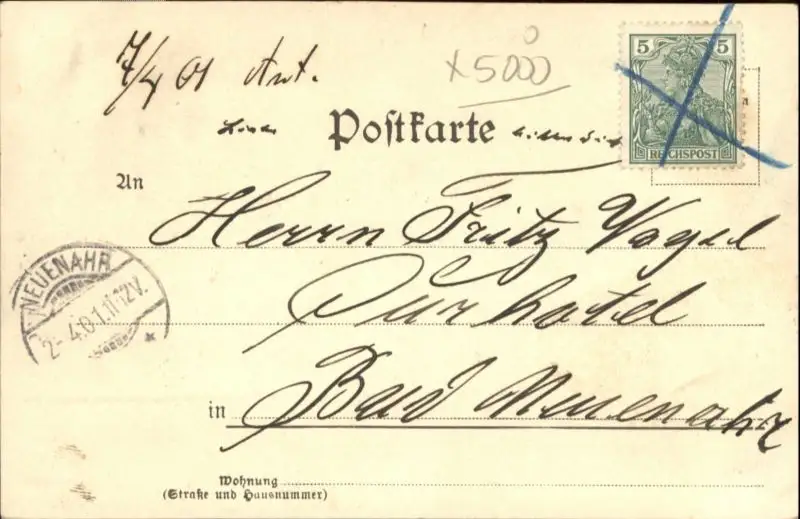 7/4 01 Ant.
x 5000
5 5
REICHSPOST
Postkarte
An
Herrn Fritz Vogel
Curhotel
in Bad Neuenahr
NEUENAHR
2-4.01.11-12V.
Wohnung
(Straße und Hausnummer)